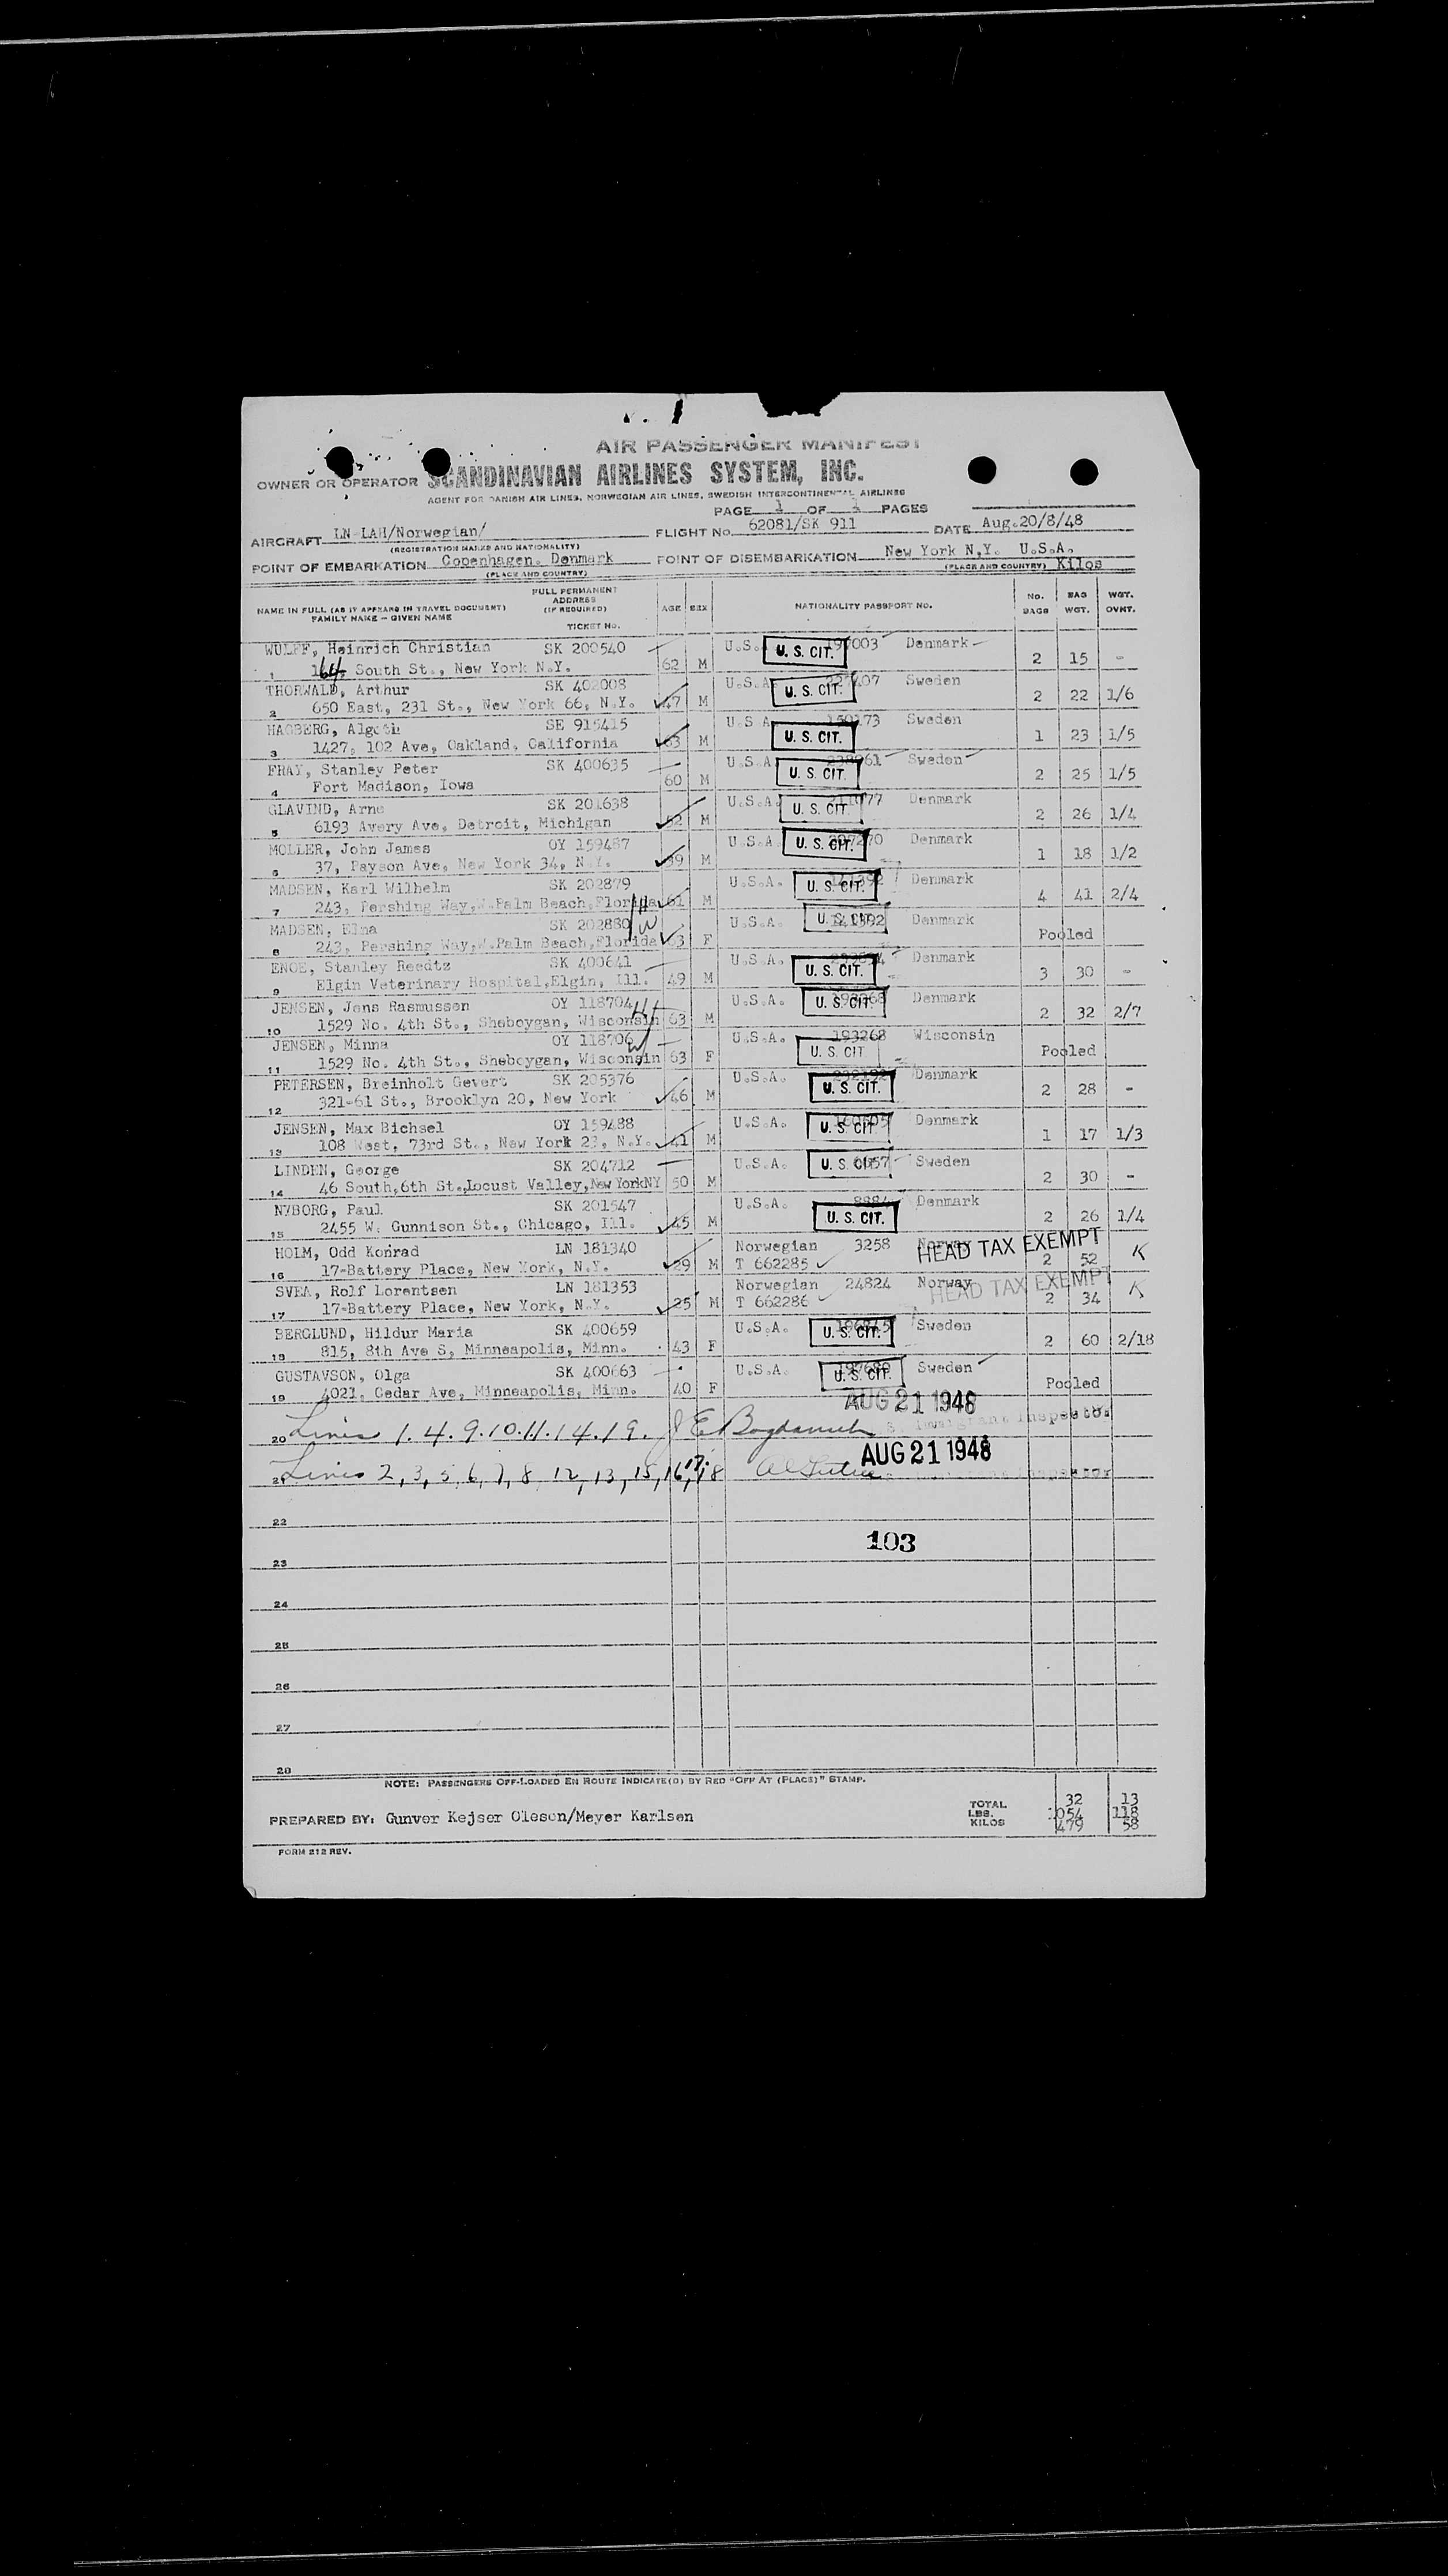 AIR PASSENGER MANIFEST
OWNER OR OPERATOR SCANDINAVIAN AIRLINES SYSTEM, INC.
AGENT FOR DANISH AIR LINES, NORWEGIAN AIR LINES, SWEDISH INTERCONTINENTAL AIRLINES
PAGE 1 OF 1 PAGES
AIRCRAFT LN-LAH/Norwegian/ FLIGHT No. 62081/SK 911 DATE Aug.20/8/48
(REGISTRATION MARKS AND NATIONALITY)
POINT OF EMBARKATION Copenhagen. Denmark POINT OF DISEMBARKATION New York N.Y. U.S.A.
(PLACE AND COUNTRY) (PLACE AND COUNTRY) Kilos
NAME IN FULL (AS IT APPEARS IN TRAVEL DOCUMENT) FAMILY NAME – GIVEN NAME FULL PERMANENT ADDRESS (IF REQUIRED) TICKET No. AGE SEX NATIONALITY PASSPORT NO. No. BAGS BAG WGT. WGT. OVWT.
WULFF, Heinrich Christian SK 200540 U.S. U. S. CIT. Denmark
1 164 South St., New York N.Y. 62 M 2 15 -
THORWALD, Arthur SK 402008 U.S.A U. S. CIT. Sweden
2 650 East, 231 St., New York 66, N.Y. 47 M 2 22 1/6
HAGBERG, Algoth SE 915415 U.S.A U. S. CIT. Sweden
3 1427, 102 Ave, Oakland, California 63 M 1 23 1/5
FRAY, Stanley Peter SK 400635 U.S.A U. S. CIT. Sweden
4 Fort Madison, Iowa 60 M 2 25 1/5
GLAVIND, Arne SK 201638 U.S.A. U. S. CIT. Denmark
5 6193 Avery Ave, Detroit, Michigan 52 M 2 26 1/4
MOLLER, John James OY 159487 U.S.A. U. S. CIT. Denmark
6 37, Payson Ave, New York 34, N.Y. 39 M 1 18 1/2
MADSEN, Karl Wilhelm SK 202879 U.S.A. U. S. CIT. Denmark
7 243, Pershing Way,W.Palm Beach,Florida H 61 M 4 41 2/4
MADSEN, Elna SK 202880 U.S.A. 141392 U. S. CIT Denmark
8 243, Pershing Way,W.Palm Beach,Florida W 63 F Pooled
ENOE, Stanley Reedtz SK 400641 U.S.A. U. S. CIT. Denmark
9 Elgin Veterinary Hospital,Elgin, Ill. 49 M 3 30 -
JENSEN, Jens Rasmussen OY 118704 H U.S.A. U. S. CIT Denmark
10 1529 No. 4th St., Sheboygan, Wisconsin 63 M 2 32 2/7
JENSEN, Minna OY 118706 W U.S.A. 193268 Wisconsin
11 1529 No. 4th St., Sheboygan, Wisconsin 63 F U. S. CIT Pooled
PETERSEN, Breinholt Gevert SK 205376 U.S.A. U. S. CIT. Denmark
12 321-61 St., Brooklyn 20, New York 46 M 2 28 -
JENSEN, Max Bichsel OY 159488 U.S.A. U. S. CIT Denmark
13 108 West, 73rd St., New York 23, N.Y. 41 M 1 17 1/3
LINDEN, George SK 204712 U.S.A. U. S. CIT Sweden
14 46 South,6th St.,Locust Valley,New YorkNY 50 M 2 30 -
NYBORG, Paul SK 201547 U.S.A. U. S. CIT. Denmark
15 2455 W. Gunnison St., Chicago, Ill. 45 M 2 26 1/4
HOLM, Odd Konrad LN 181340 Norwegian 3258 Norway HEAD TAX EXEMPT
16 17-Battery Place, New York, N.Y. 29 M T 662285 2 52 K
SVEA, Rolf Lorentsen LN 181353 Norwegian 24824 Norway HEAD TAX EXEMPT
17 17-Battery Place, New York, N.Y. 25 M T 662286 2 34 K
BERGLUND, Hildur Maria SK 400659 U.S.A. U. S. CIT. Sweden
18 815, 8th Ave S, Minneapolis, Minn. 43 F 2 60 2/18
GUSTAVSON, Olga SK 400663 U.S.A. U. S. CIT. Sweden
19 4021, Cedar Ave, Minneapolis, Minn. 40 F Pooled
AUG 21 1948
20 Lines 1.4.9.10.11.14.19. Immigrant Inspector
AUG 21 1948
21 Lines 2, 3, 5, 6, 7, 8 12, 13, 15, 16, 17, 18 Inspector
22
103
23
24
25
26
27
28
NOTE: PASSENGERS OFF-LOADED EN ROUTE INDICATE(D) BY RED "OFF AT (PLACE)" STAMP.
TOTAL 32 13
PREPARED BY: Gunver Kejser Oleson/Meyer Karlsen LBS. 1054 118
KILOS 479 58
FORM 212 REV.